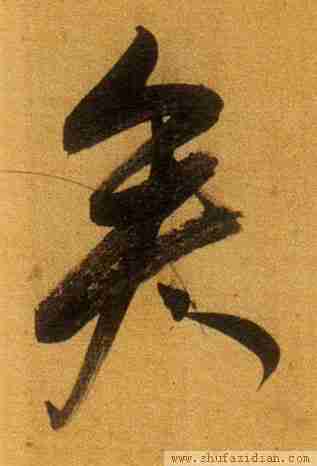 矣
www.shufazidian.com